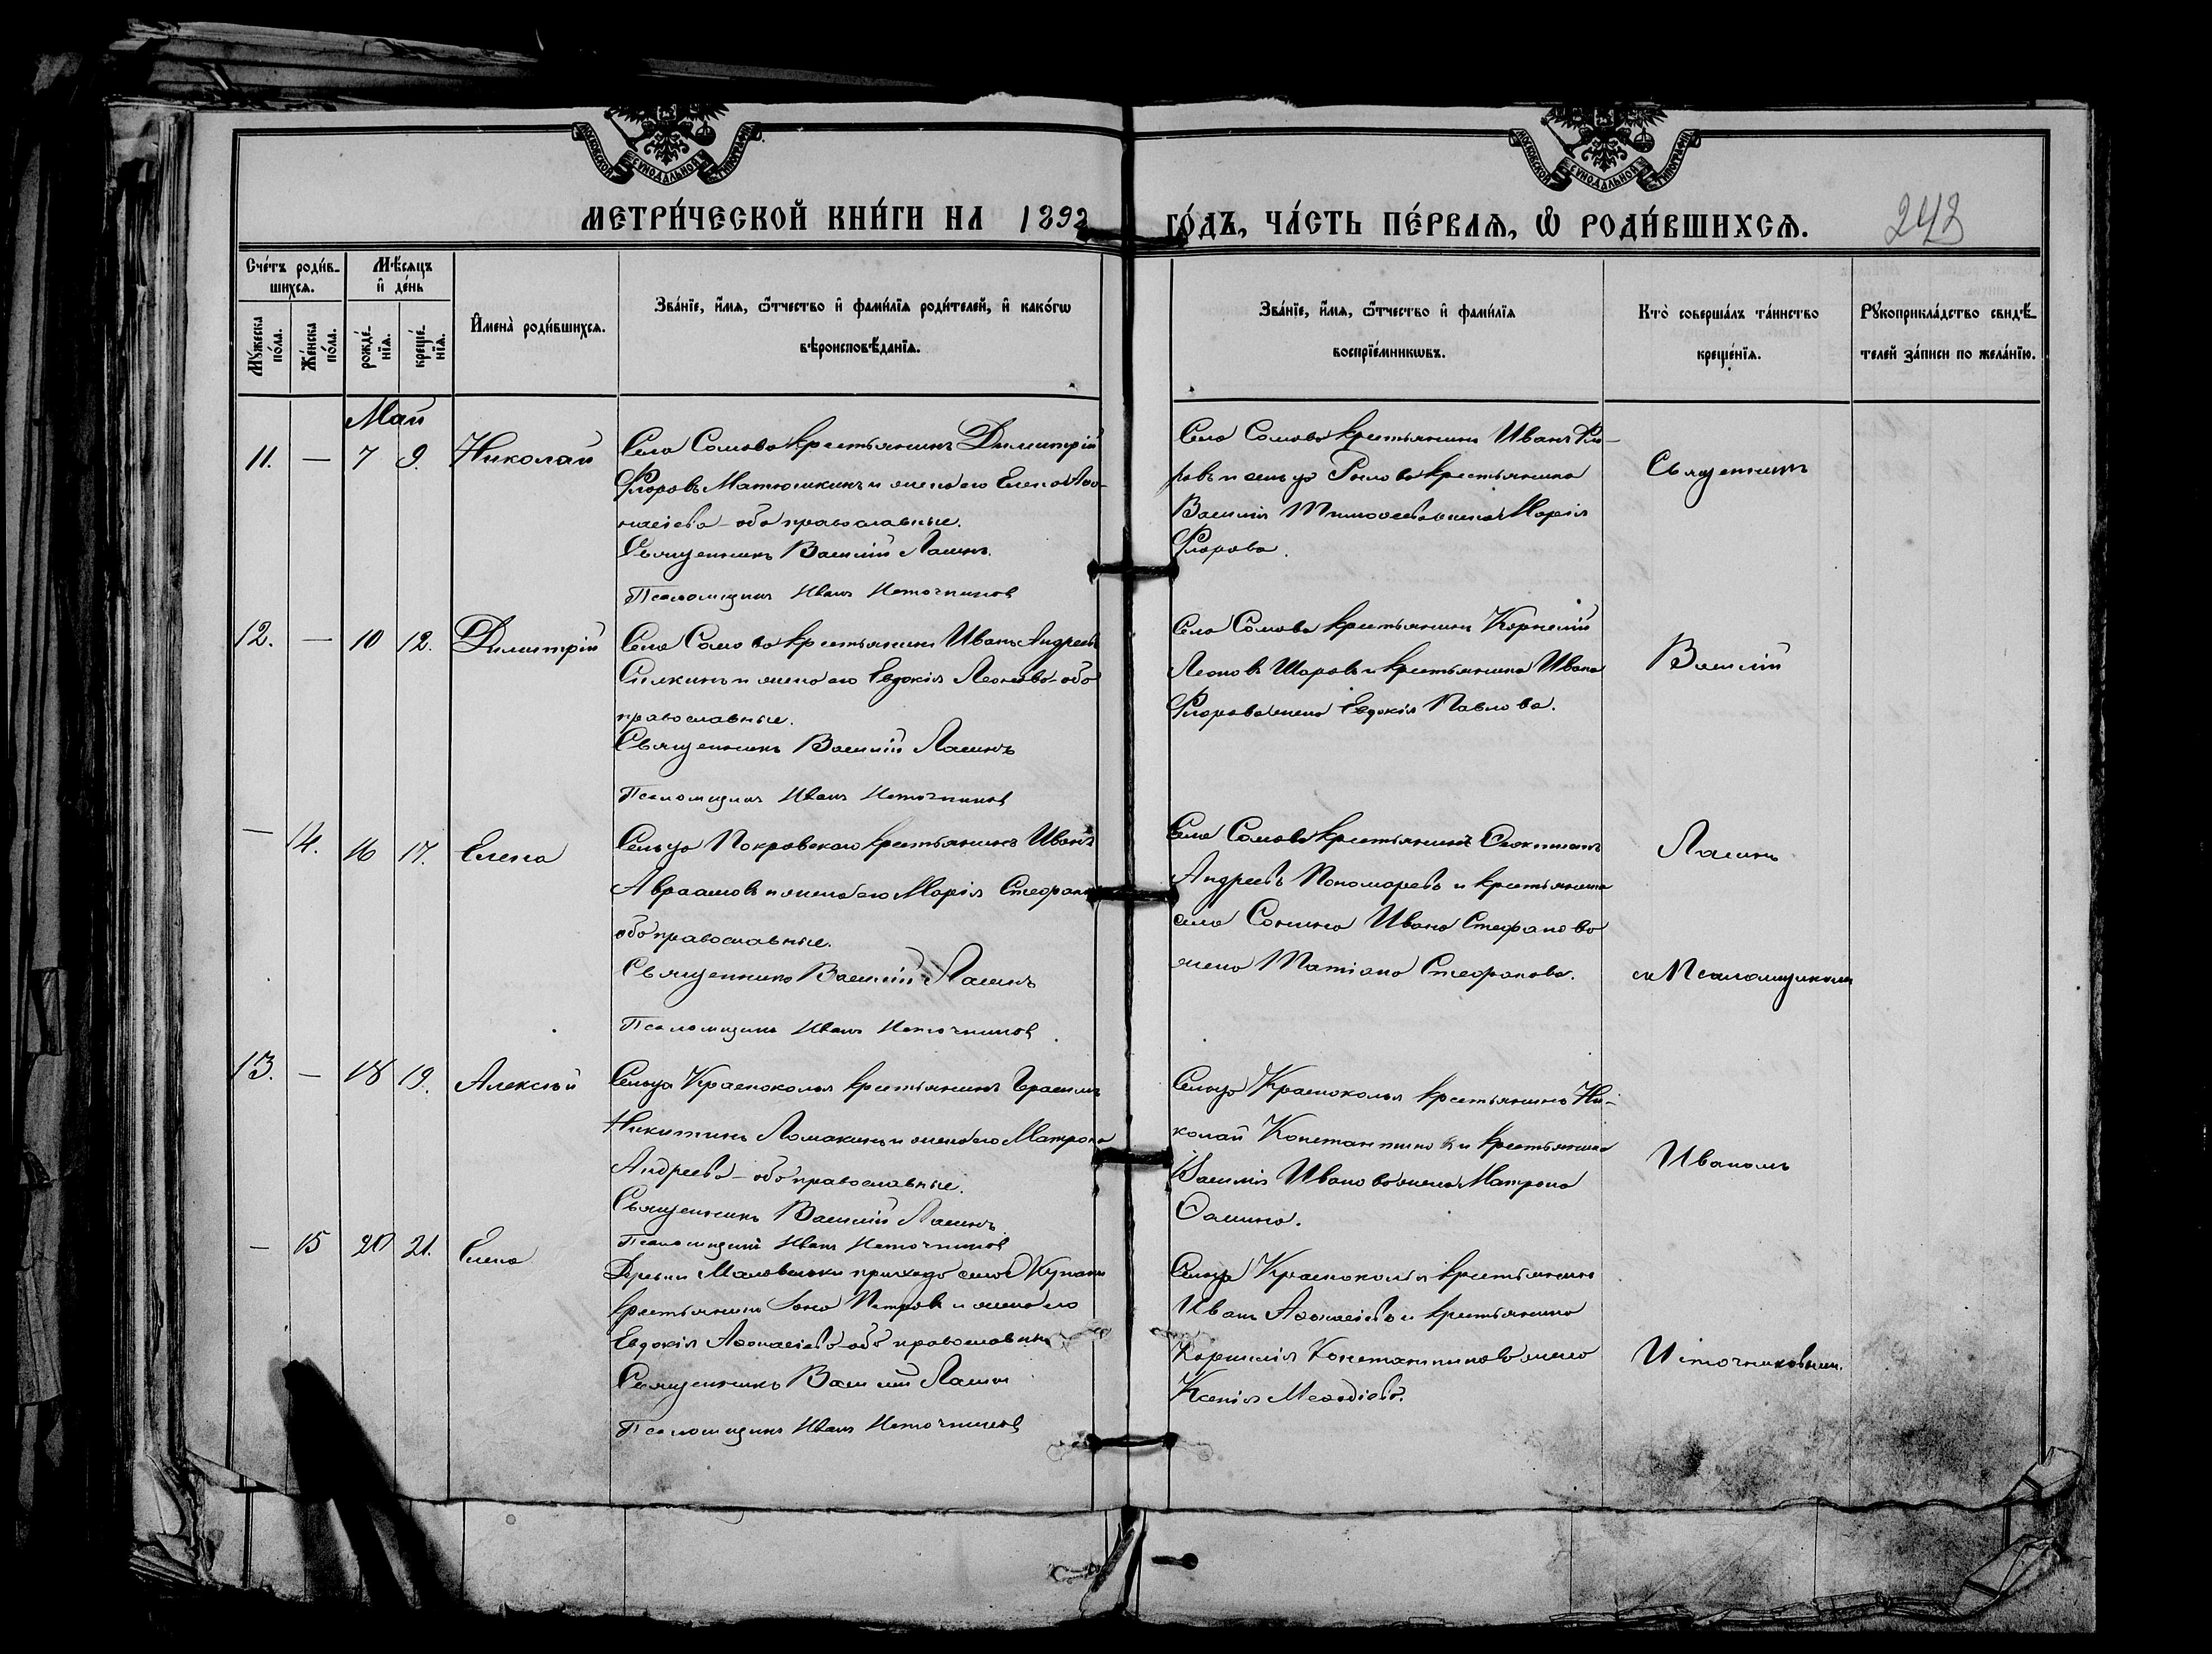 МОСКОВСКОЙ СУНОДАЛЬНОЙ ТИПОГРАФІИ
МОСКОВСКОЙ СУНОДАЛЬНОЙ ТИПОГРАФІИ
МЕТРИ́ЧЕСКОЙ КНИ́ГИ НА 1892 ГО́ДЪ, ЧА́СТЬ ПЕ́РВАѦ, Ѡ РОДИ́ВШИХСѦ.
243
Сче́тъ роди́в-
шихсѧ.
Мѣ́сѧцъ
и҆ де́нь
Мꙋ́жеска
по́ла.
Же́нска
по́ла.
рожде́-
нїѧ.
креще́-
нїѧ.
И҆мена̀ роди́вшихсѧ.
Зва́нїе, и҆́мѧ, ѻ҆́тчество и҆ фами́лїѧ роди́телей, и҆ како́гѡ
вѣроисповѣ́данїѧ.
Зва́нїе, и҆́мѧ, ѻ҆́тчество и҆ фами́лїѧ
воспрїе́мникѡвъ.
Кто̀ соверша́лъ та́инство
креще́нїѧ.
Рꙋкоприкла́дство свидѣ́-
телей за́писи по жела́нїю.
Май
11. — 7 9. Николай
Села Сомова крестьянинъ Димитрій
Флоровъ Матюшкинъ и жена его Елена Аѳо-
насіева - оба православные.
Священникъ Василій Лашинъ.
Псаломщикъ Иванъ Источников
Села Сомова крестьянинъ Иванъ Фло-
ровъ и сельца крестьянина
Василія Тимоѳеева жена Марія
Флорова.
Священникъ
12. — 10 12. Димитрій
Села Сомова крестьянинъ Иванъ Андреевъ
Силкинъ и жена его Евдокія Леонова - оба
православные.
Священникъ Василій Лашинъ
Псаломщикъ Иванъ Источников
Села Сомова крестьянинъ Корнелій
Леоновъ Шаровъ и крестьянина Ивана
Флорова жена Евдокія Павлова.
Василій
— 14. 16 17. Елена
Сельца Покровскаго крестьянинъ Иванъ
Авраамовъ и жена его Марія Стефанова
оба православные.
Священникъ Василій Лашинъ
Псаломщикъ Иванъ Источников
Села Сомова крестьянинъ Ѳеоктистъ
Андреевъ Пономаревъ и крестьянина
села Сонина Ивана Стефанова
жена Татіана Стефанова.
Лашинъ
съ Псаломщикомъ
13. — 18 19. Алексѣй
Сельца Красноколья крестьянинъ Герасимъ
Никитинъ Ломакинъ и жена его Матрона
Андреева - оба православные.
Священникъ Василій Лашинъ
Псаломщикъ Иванъ Источников
Сельца Красноколья крестьянинъ Ни-
колай Константиновъ и крестьянина
Василія Иванова жена Матрона
Ѳомина.
Иваномъ
— 15 20 21. Елена
Деревни прихода села
крестьянинъ Іона Петровъ и жена его
Евдокія Аѳонасіева - оба православные
Священникъ Василій Лашинъ
Псаломщикъ Иванъ Источников
Сельца Красноколья крестьянинъ
Иванъ Аѳонасіевъ и крестьянина
Корнилія Константинова жена
Ксенія Меѳодіева.
Источниковымъ.